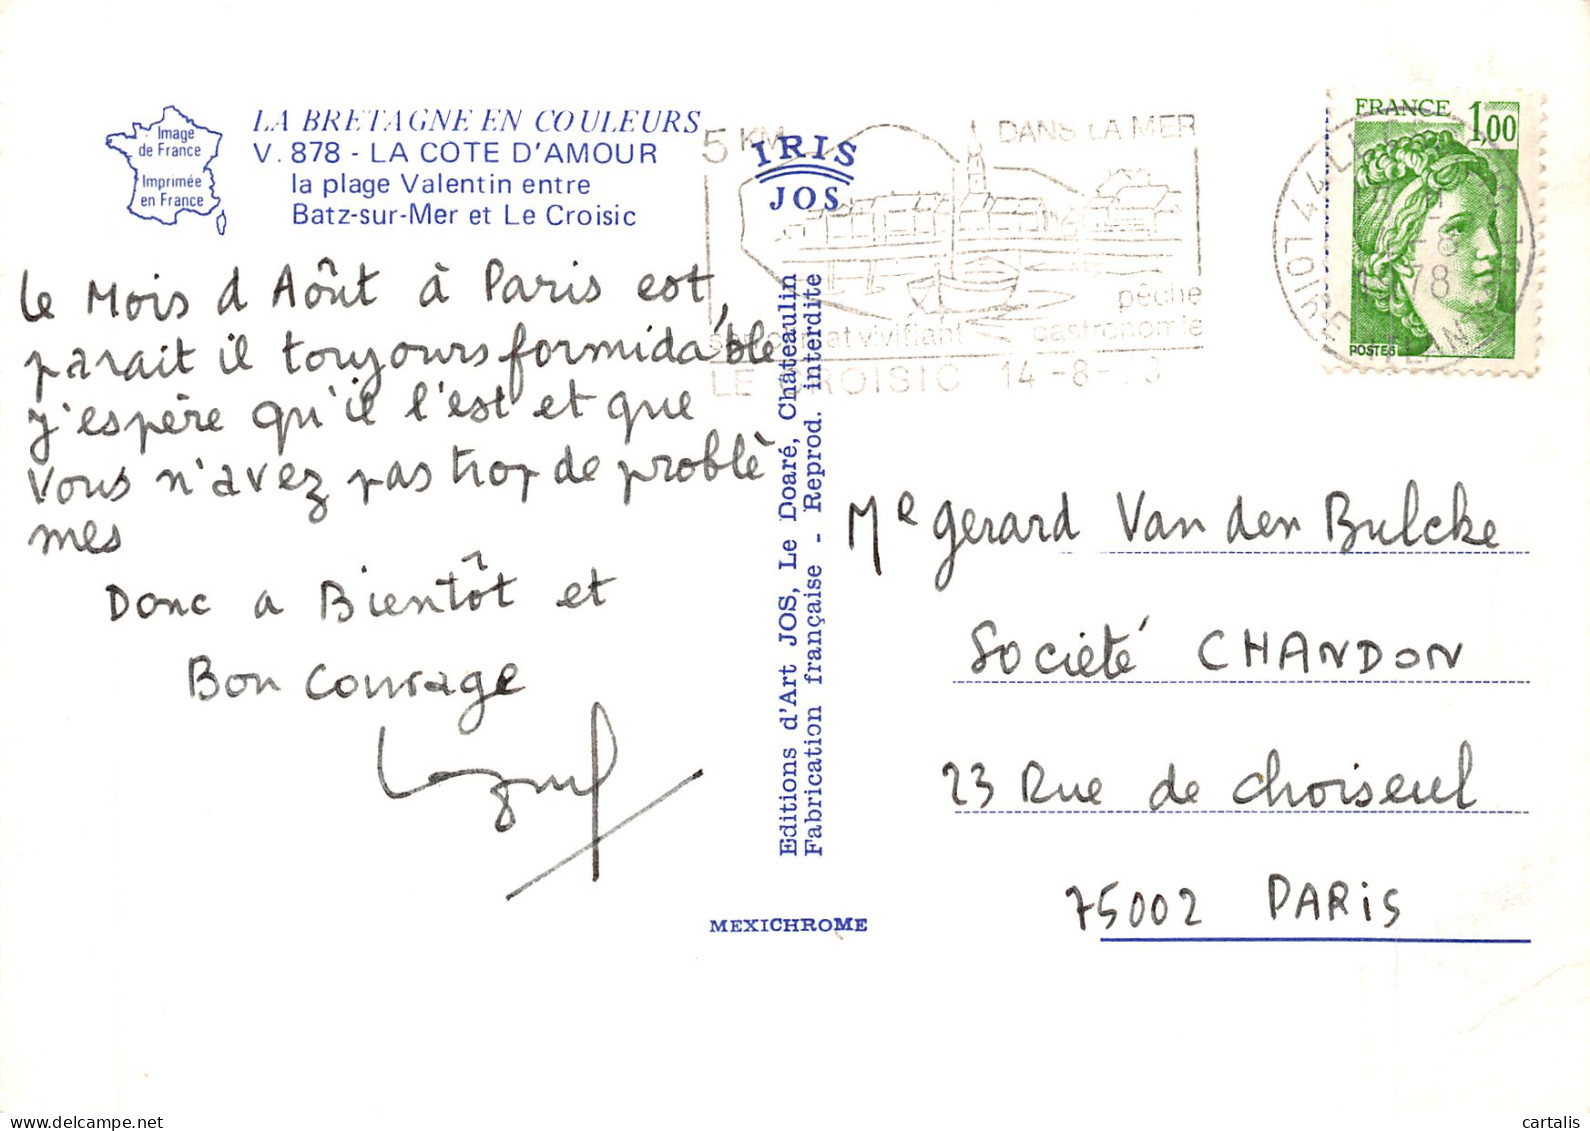 Image
de France
Imprimée
en France
LA BRETAGNE EN COULEURS
V. 878 - LA COTE D'AMOUR
la plage Valentin entre
Batz-sur-Mer et Le Croisic
Le Mois d Aôut à Paris est,
parait il toujours formidable
J'espère qu'il l'est et que
Vous n'avez pas trop de problè
mes
Donc a Bientôt et
Bon Courage
5 KM DANS LA MER
pêche
vivifiant gastronomie
LE CROISIC 14-8-
IRIS
JOS
Editions d'Art JOS, Le Doaré, Châteaulin
Fabrication française - Reprod. interdite
MEXICHROME
FRANCE 1,00
POSTES
44 LOIRE ATLAN
-8
78
Mr Gerard Van den Bulcke
Société CHANDON
23 Rue de Choiseul
75002 PARIS
cartalis